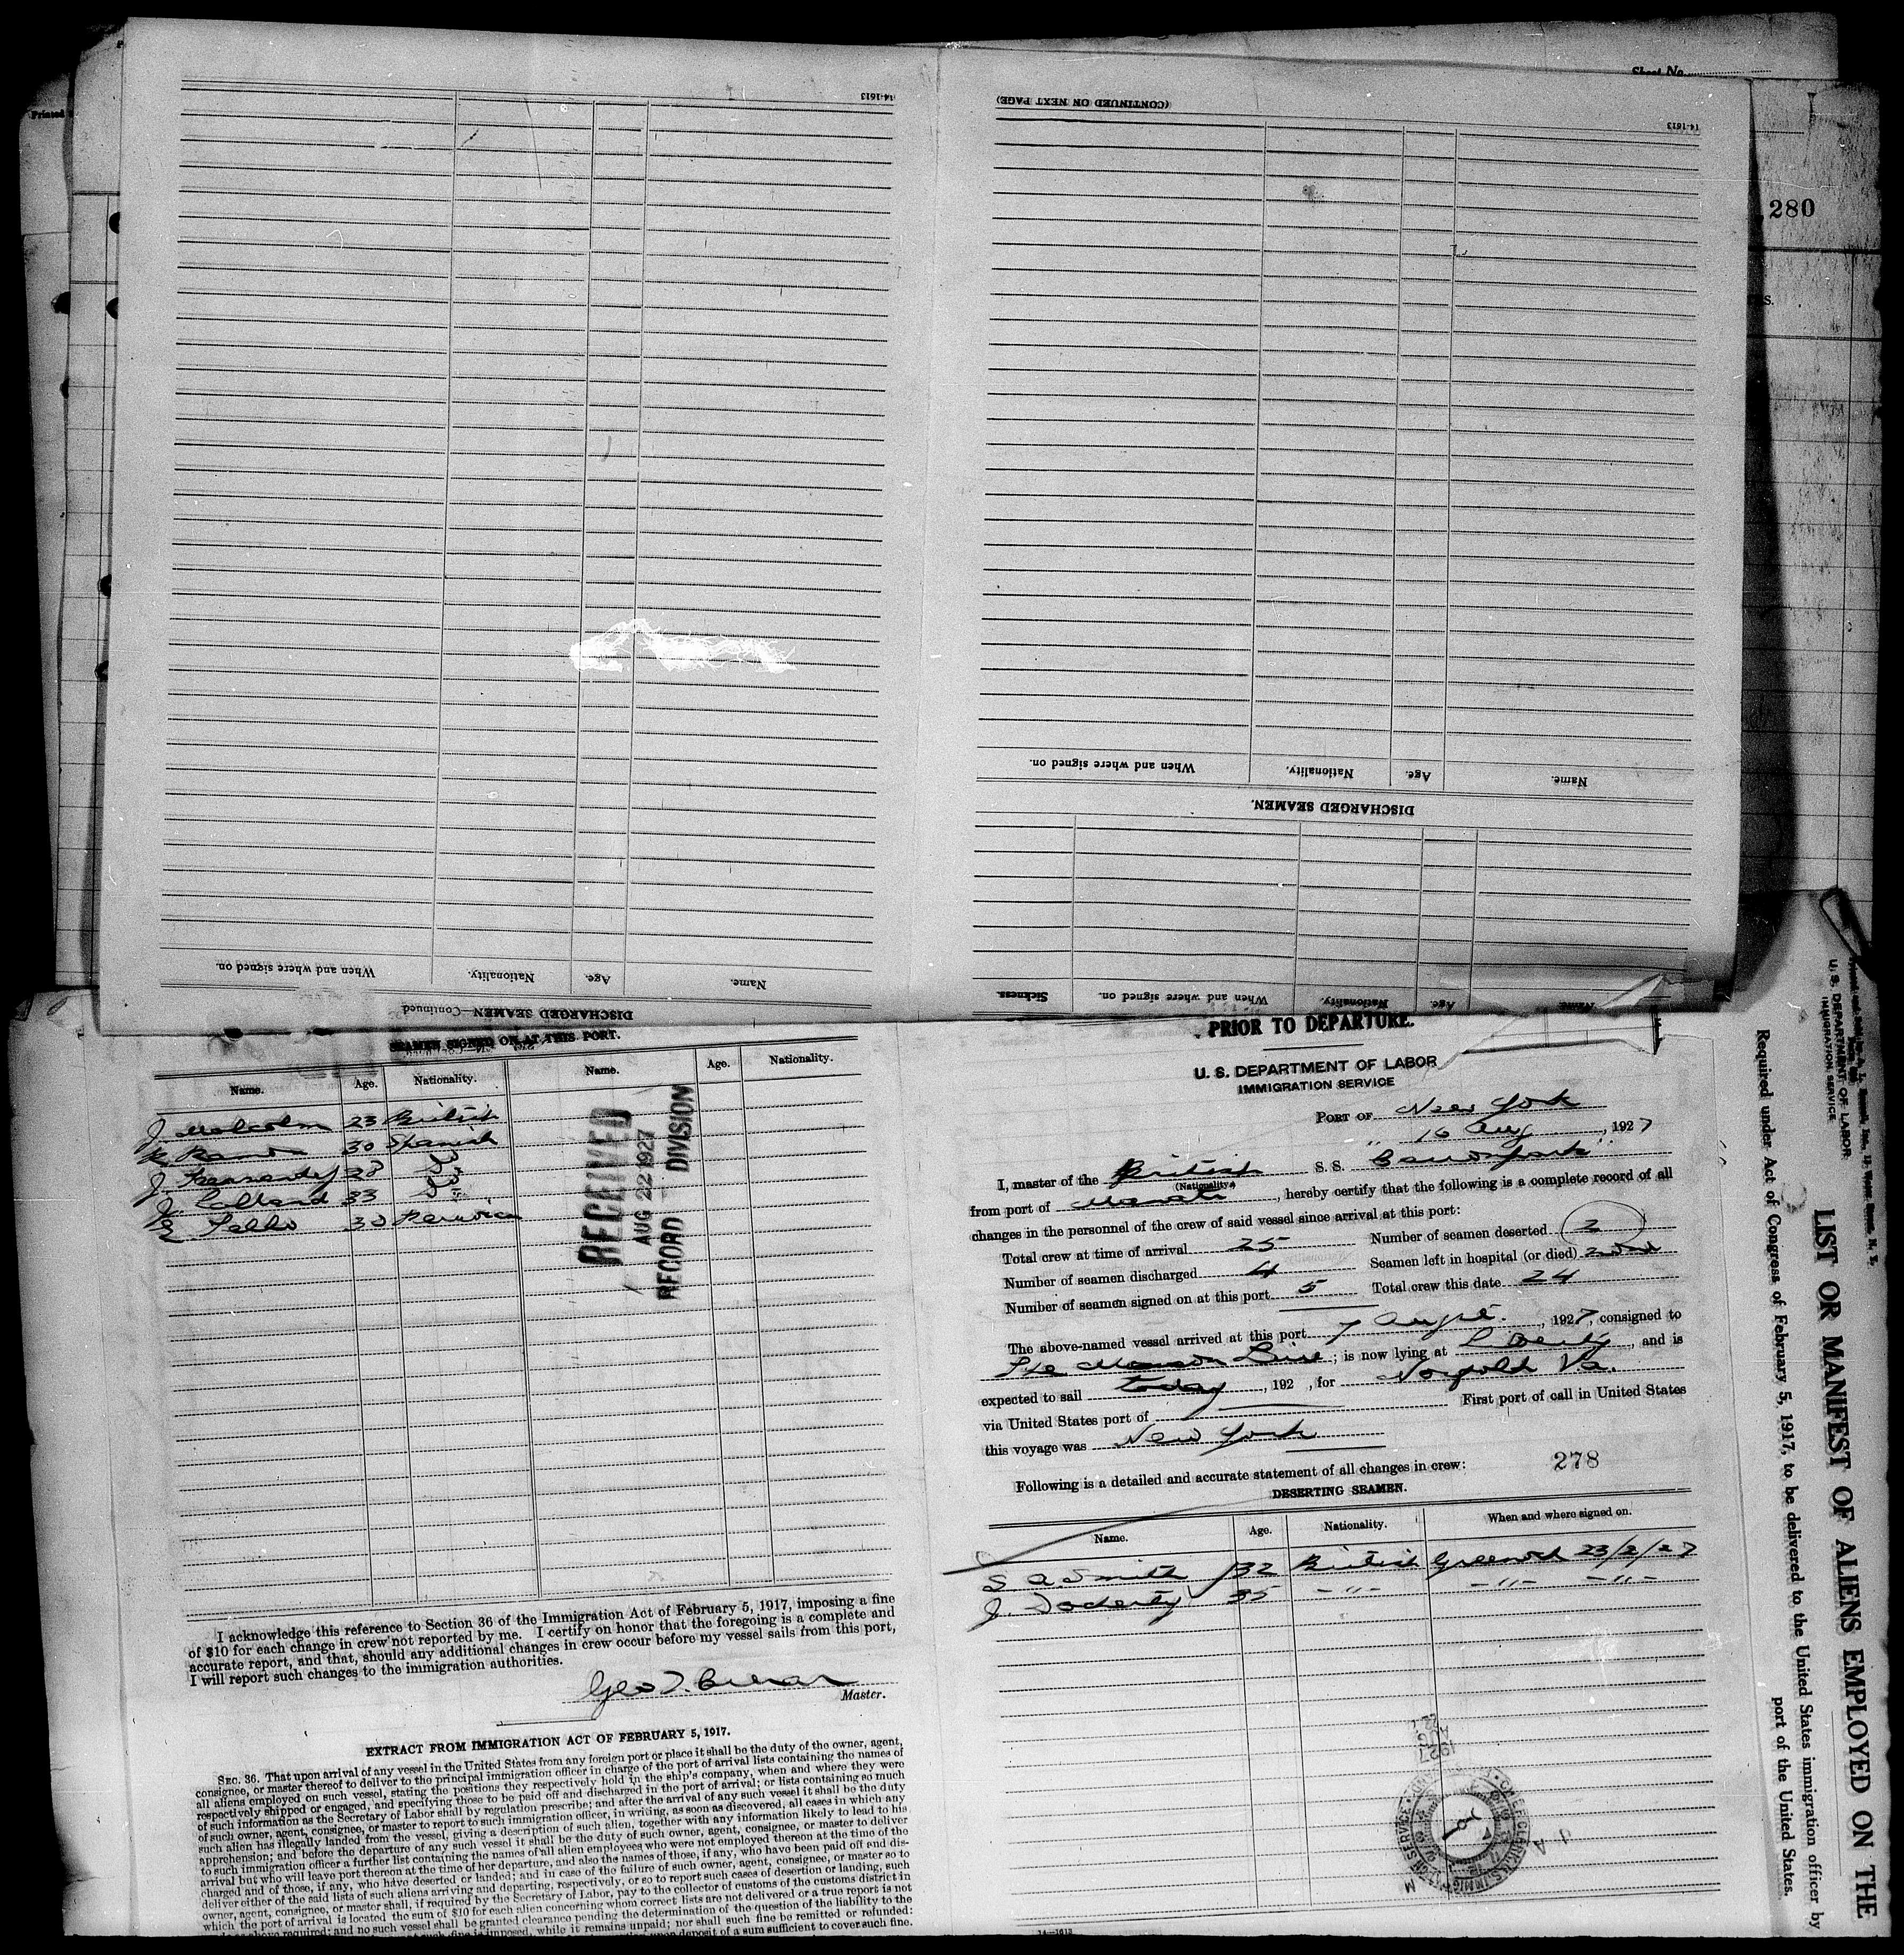 Sheet No.
Printed
280
14-1613
(CONTINUED ON NEXT PAGE)
14-1613
When and where signed on. Nationality. Age. Name.
DISCHARGED SEAMEN.
Sickness. When and where signed on. Nationality. Age. Name.
When and where signed on. Nationality. Age. Name.
DISCHARGED SEAMEN—Continued
SEAMEN SIGNED ON AT THIS PORT.
Name. Age. Nationality. Name. Age. Nationality.
J Malcolm 23 British
30 Spanish
J. 28 Do
J. 33 Do
30
RECEIVED
AUG 22 1927
RECORD DIVISION
I acknowledge this reference to Section 36 of the Immigration Act of February 5, 1917, imposing a fine
of $10 for each change in crew not reported by me. I certify on honor that the foregoing is a complete and
accurate report, and that, should any additional changes in crew occur before my vessel sails from this port,
I will report such changes to the immigration authorities.
Geo
Master.
EXTRACT FROM IMMIGRATION ACT OF FEBRUARY 5, 1917.
SEC. 36. That upon arrival of any vessel in the United States from any foreign port or place it shall be the duty of the owner, agent,
consignee, or master thereof to deliver to the principal immigration officer in charge of the port of arrival lists containing the names of
all aliens employed on such vessel, stating the positions they respectively hold in the ship's company, when and where they were
respectively shipped or engaged, and specifying those to be paid off and discharged in the port of arrival; or lists containing so much
of such information as the Secretary of Labor shall by regulation prescribe; and after the arrival of any such vessel it shall be the duty
of such owner, agent, consignee, or master to report to such immigration officer, in writing, as soon as discovered, all cases in which any
such alien has illegally landed from the vessel, giving a description of such alien, together with any information likely to lead to his
apprehension; and before the departure of any such vessel it shall be the duty of such owner, agent, consignee, or master to deliver
to such immigration officer a further list containing the names of all alien employees who were not employed thereon at the time of the
arrival but who will leave port thereon at the time of her departure, and also the names of those, if any, who have been paid off and dis-
charged and of those, if any, who have deserted or landed; and in case of the failure of such owner, agent, consignee, or master so to
deliver either of the said lists of such aliens arriving and departing, respectively, or so to report such cases of desertion or landing, such
owner, agent, consignee, or master shall, if required by the Secretary of Labor, pay to the collector of customs of the customs district in
which the port of arrival is located the sum of $10 for each alien concerning whom correct lists are not delivered or a true report is not
made as above required; and no such vessel shall be granted clearance pending the determination of the question of the liability to the
such fine is imposed, while it remains unpaid; nor shall such fine be remitted or refunded:
upon deposit of a sum sufficient to cover such fine.
PRIOR TO DEPARTURE.
U. S. DEPARTMENT OF LABOR
IMMIGRATION SERVICE
PORT OF New York
16 Aug, 1927
I, master of the British S. S.
(Nationality)
from port of Manati, hereby certify that the following is a complete record of all
changes in the personnel of the crew of said vessel since arrival at this port:
Total crew at time of arrival 25 Number of seamen deserted 2
Number of seamen discharged 4 Seamen left in hospital (or died)
Number of seamen signed on at this port 5 Total crew this date 24
The above-named vessel arrived at this port 7 Augst., 1927, consigned to
The Munson Line; is now lying at, and is
expected to sail today, 192 , for Norfolk Va.
via United States port of First port of call in United States
this voyage was New York
Following is a detailed and accurate statement of all changes in crew: 278
DESERTING SEAMEN.
Name. Age. Nationality. When and where signed on.
S A Smith 32 British Greenock 23/2/27
J. Docherty 35 -"- -"- -"-
14—1613
U. S. DEPARTMENT OF LABOR
IMMIGRATION SERVICE
LIST OR MANIFEST OF ALIENS EMPLOYED ON THE
Required under Act of Congress of February 5, 1917, to be delivered to the United States immigration officer by
port of the United States.